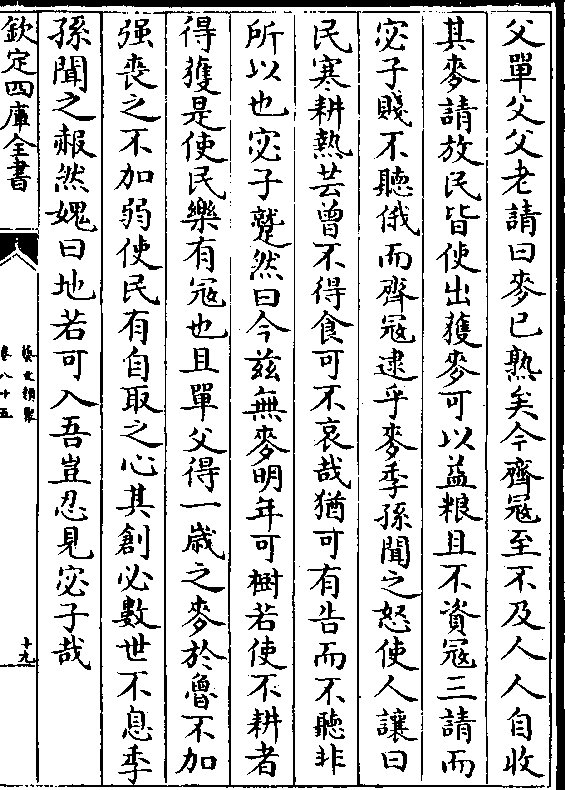 父單父父老請曰麥已熟矣今齊寇至不及人人自收
其麥請放民皆使出獲麥可以益粮且不資寇三請而
宓子賤不聽俄而齊寇逮乎麥季孫聞之怒使人讓曰
民寒耕熱芸曾不得食可不哀哉猶可有告而不聽非
所以也宓子蹵然曰今兹無麥明年可樹若使不耕者
得獲是使民樂有寇也且單父得一歲之麥於魯不加
强喪之不加弱使民有自取之心其創必數世不息季
孫聞之赧然媿曰地若可入吾豈忍見宓子哉
欽定四庫全書
藝文類聚
卷八十五
十九